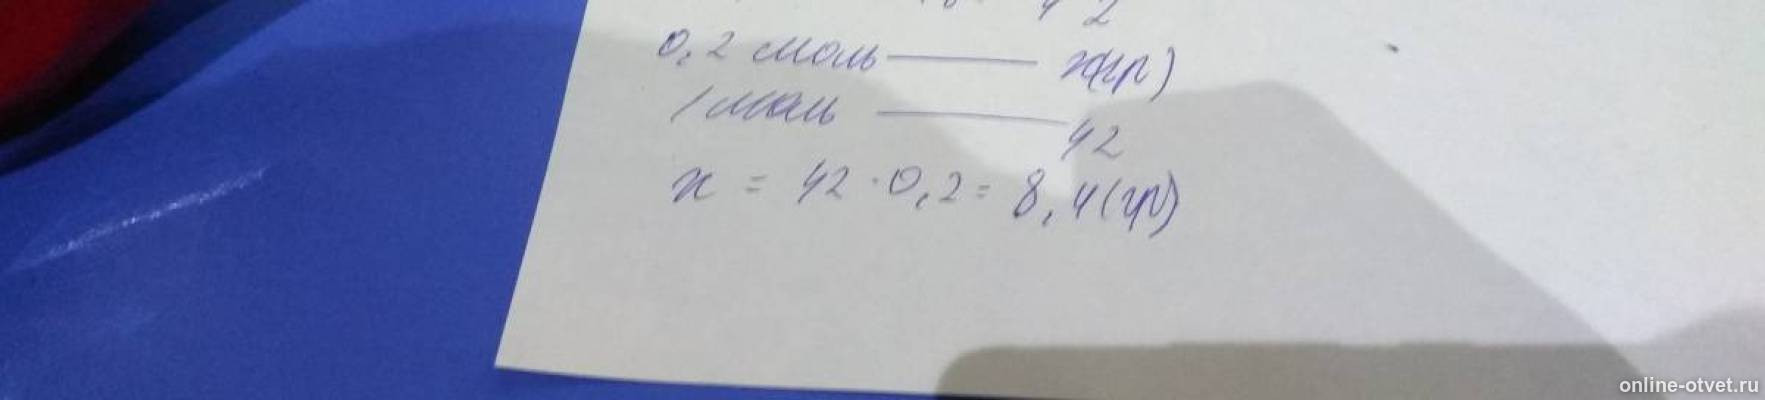 42
0,2 моль —— x(гр)
1 моль —— 42
x = 42 · 0,2 = 8,4 (гр)
online-otvet.ru